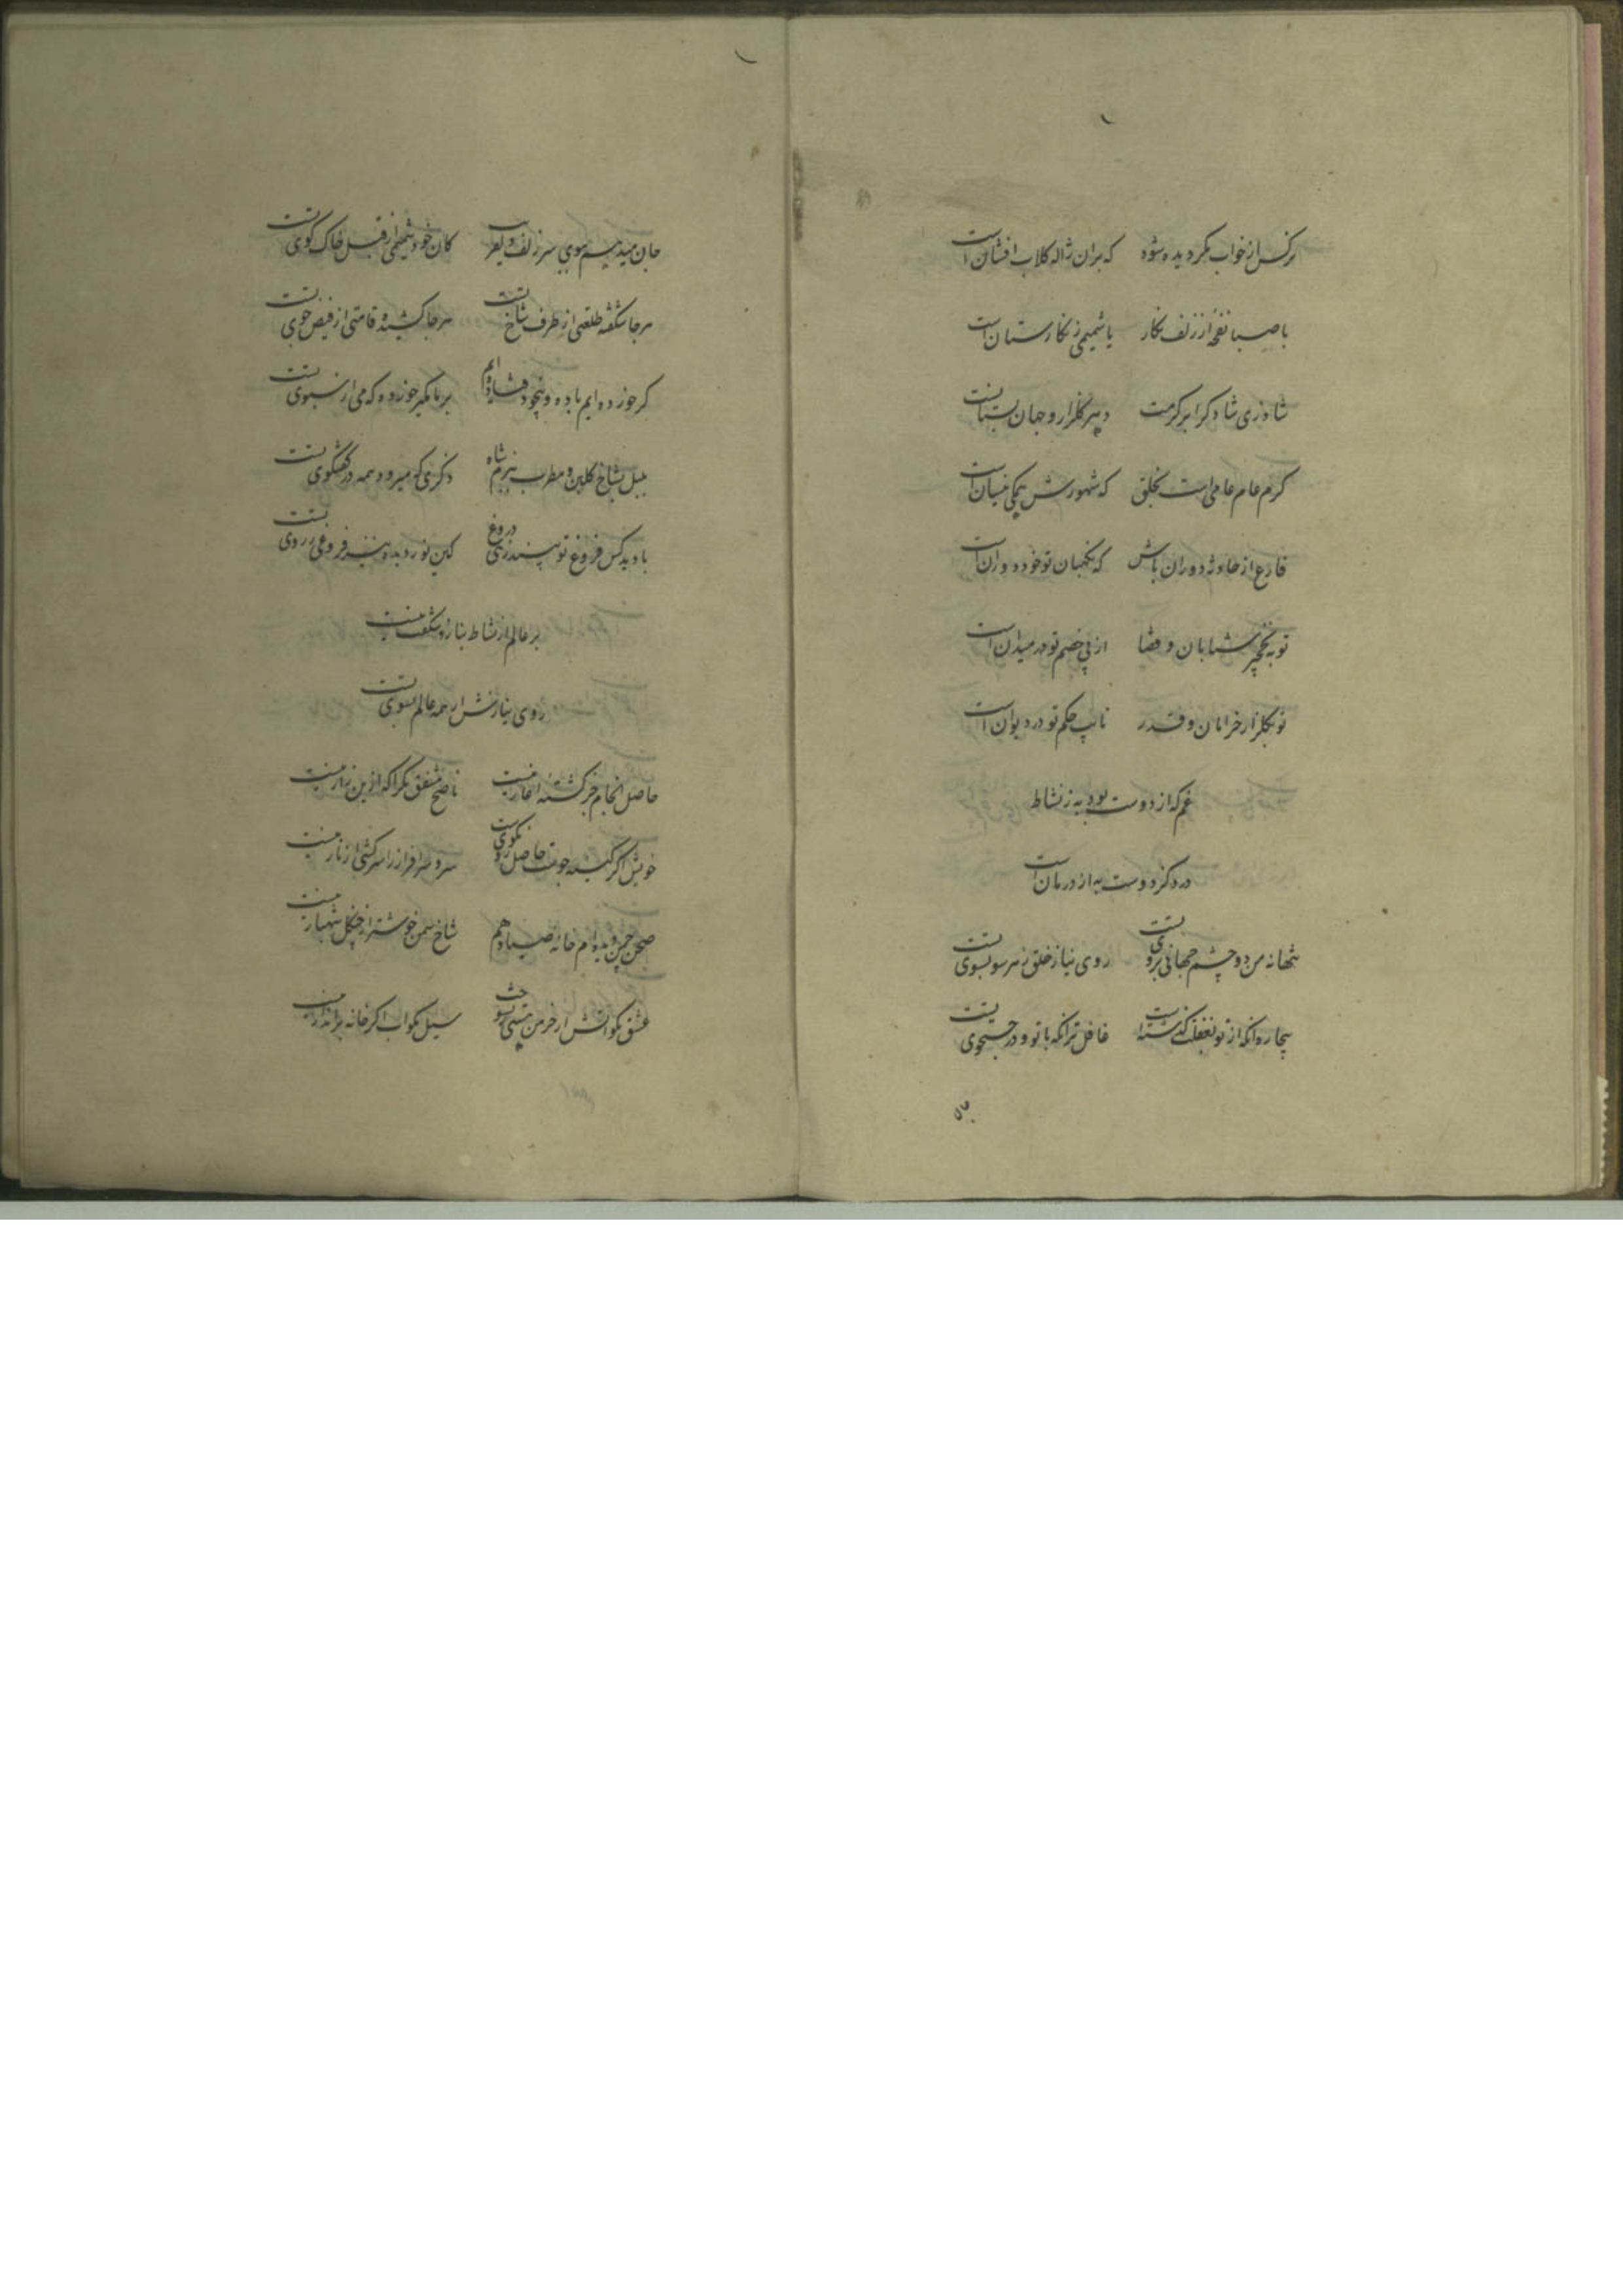 نرکس از خواب مکر دیده شود که بران ژاله کلاب افشان است
با صبا نفخه از زلف نکار یا شمیمی ز نکارستان است
شاد زی شاد کز ابر کرمت دهر کلزار و جهان بستانست
کرم عام عامی است بخلق که شهورش یکی نیسان است
فارغ از حادثه دوران باش که نکهبان تو خود دوران است
تو به نخچیر شتابان و قضا از پی خصم تو در میدان است
تو بکلزار خرامان و قدر نایب حکم تو در دیوان است
غم که از دوست بود به ز نشاط
درد کز دوست به از درمان است
تنها نه من دو چشم جهانی بروی تست روی نیاز خلق ز هر سو بسوی تست
بیچاره آنکه از تو بغفلت کذشته است غافل تر آنکه با تو و در جستجوی تست
۵۲
جان میدهیم بوی سر زلف کان خود شمیمی از قبل خاک کوی تست
هر جا شکفته طلعتی از طرف شاخ تست هر جا کشیده قامتی از فیض جوی تست
کر خورده ایم باده و بیخود فتاده ایم بر ما مکیر خورده که می از سبوی تست
بلبل بشاخ کلبن و مطرب ببزم شاه ذکری که میرود همه در کفتکوی تست
نا دیده کس فروغ تو پنداری دروغ کین نور دیده نیز فروغی ز روی تست
بر عالم از نشاط بنازد شکفت نیست
روی نیازش از همه عالم بسوی تست
حاصل انجام جز کشته آغاز نیست ناصح مشفق مکر آکه ازین راز نیست
سرو سرافراز را سرکشی از ناز نیست
صحن چمن دیده ام خانه صیاد هم شاخ سمن خوشتر از چنکل شهباز نیست
عشق نکو آتش ار خرمن هستی بسوخت سیل نکو آب اکر خانه برانداز نیست